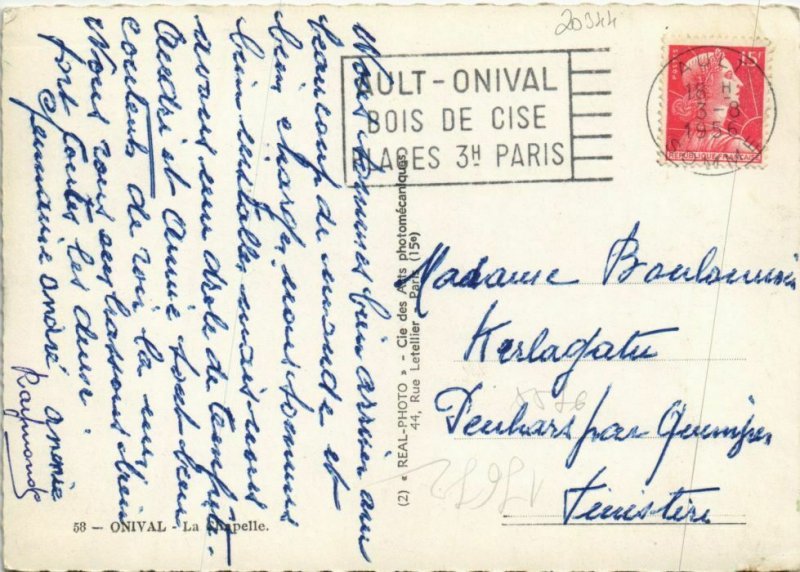 Nous sommes bien arriver au
beaucoup de monde et
bien charger nous sommes
bien installes mais nous
avons un drole de temps
André et Annie sont bien
contents de voir la mer
Nous vous embrassons bien
fort toutes les deux.
Germaine André Annie
Raymonde
20344
AULT-ONIVAL
BOIS DE CISE
PLAGES 3H PARIS
POSTES
15F
RÉPUBLIQUE FRANÇAISE
AULT
18 H
3 8
1956
SOMME
Madame
Kerlagatu
Penhars par Quimper
Finistère
(2) « REAL-PHOTO » - Cie des Arts photomécaniques
44, Rue Letellier - Paris (15e)
58 — ONIVAL - La Chapelle.